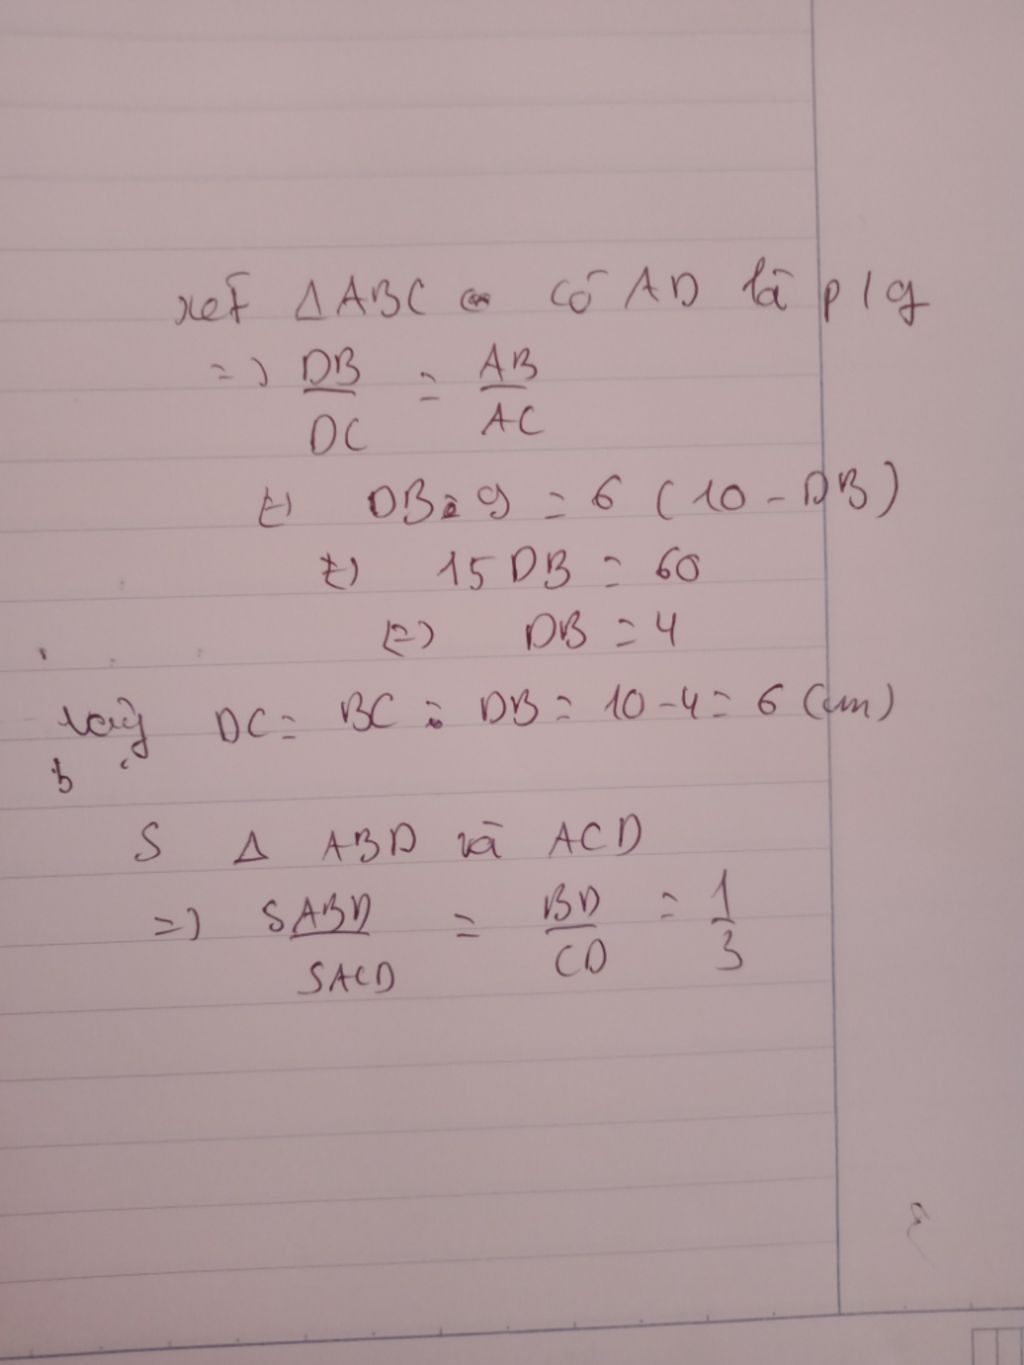 xét ΔABC có AD là p/g
=> DB/DC = AB/AC
<=> DB.9 = 6 (10 - DB)
<=> 15 DB = 60
<=> DB = 4
vậy DC = BC - DB = 10 - 4 = 6 (cm)
b
S Δ ABD và ACD
=> SABD/SACD = BD/CD = 1/3